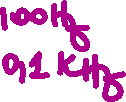 100Hz
0,1 KHz